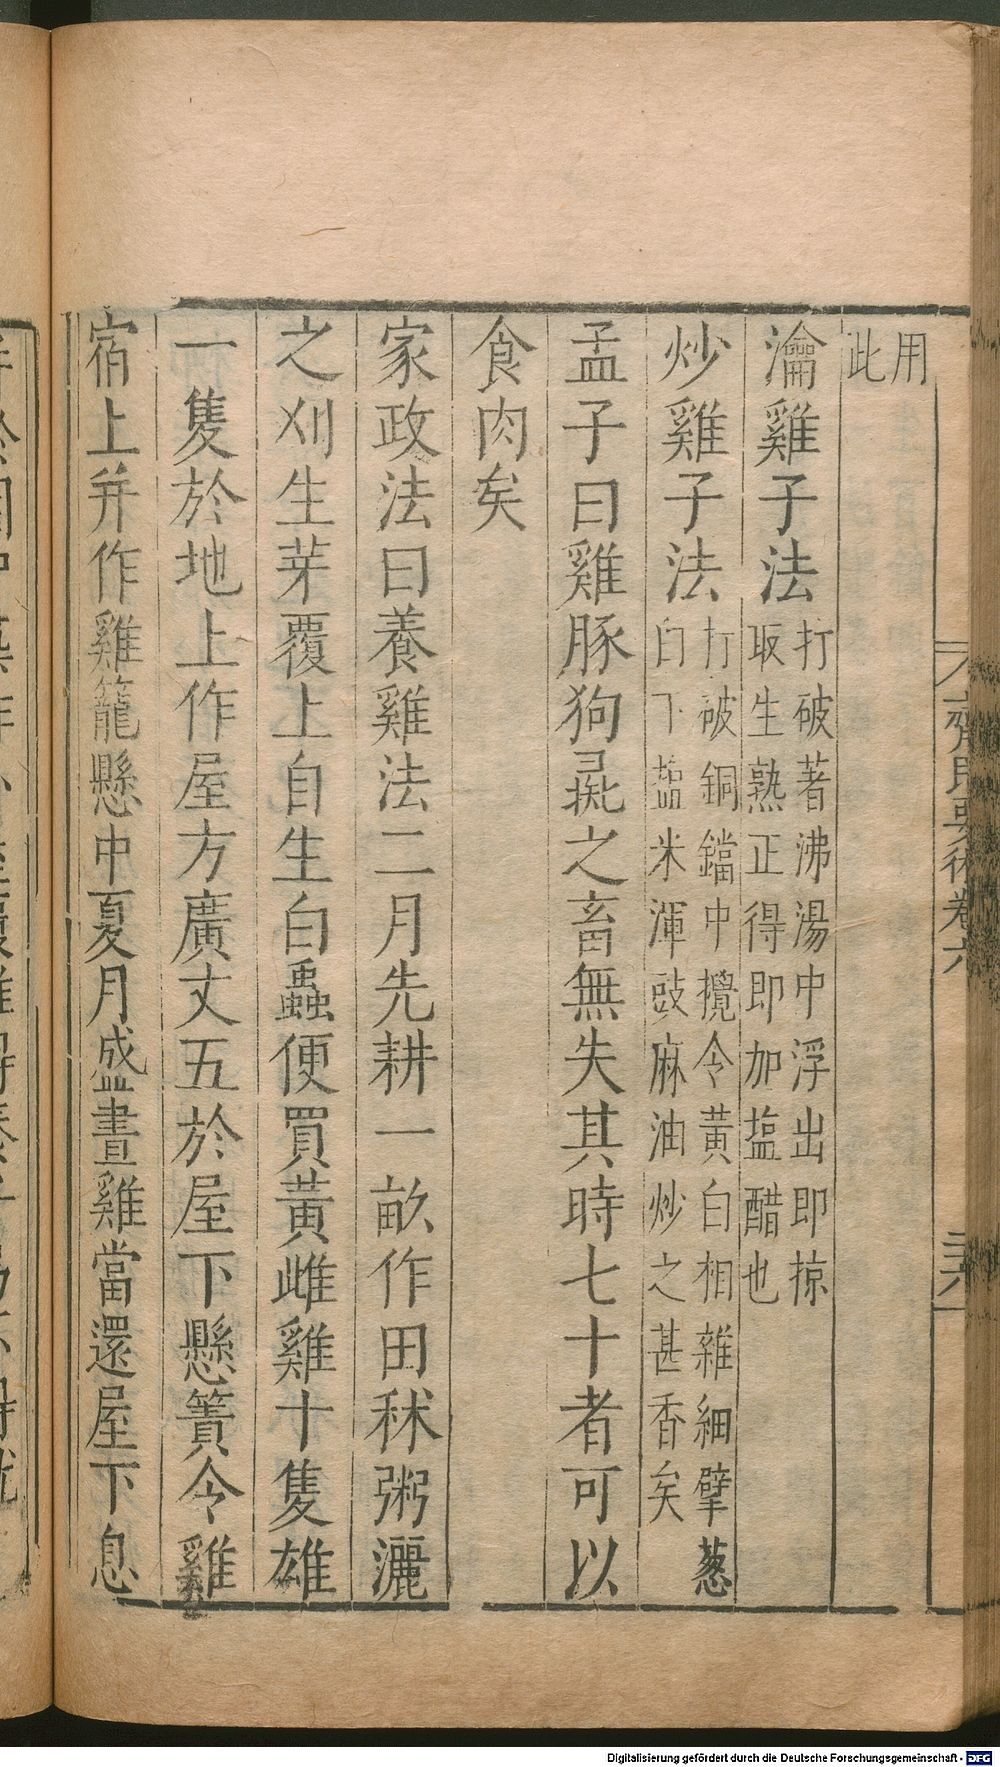 齊民要術卷六
用
此
瀹雞子法 打破著沸湯中浮出即掠
取生熟正得即加塩醋也
炒雞子法 打破銅鐺中攪令黄白相雜細擘葱
白下塩米渾豉麻油炒之甚香矣
孟子曰雞豚狗彘之畜無失其時七十者可以
食肉矣
家政法曰養雞法二月先耕一畝作田秫粥灑
之刈生芽覆上自生白蟲便買黄雌雞十隻雄
一隻於地上作屋方廣丈五於屋下懸簀令雞
宿上并作雞籠懸中夏月盛晝雞當還屋下息
Digitalisierung gefördert durch die Deutsche Forschungsgemeinschaft - DFG